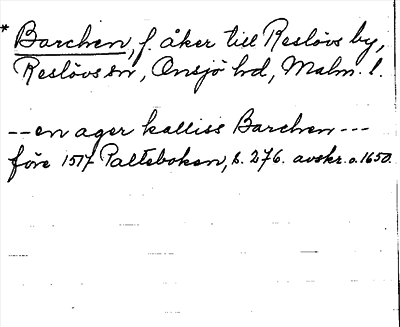 * Barchen, f. åker till Reslövs by,
Reslövs sn, Onsjö hd, Malm. l.
-- en ager kalliss Barchen ---
före 1517 Palteboken, s. 276. avskr. o. 1650.